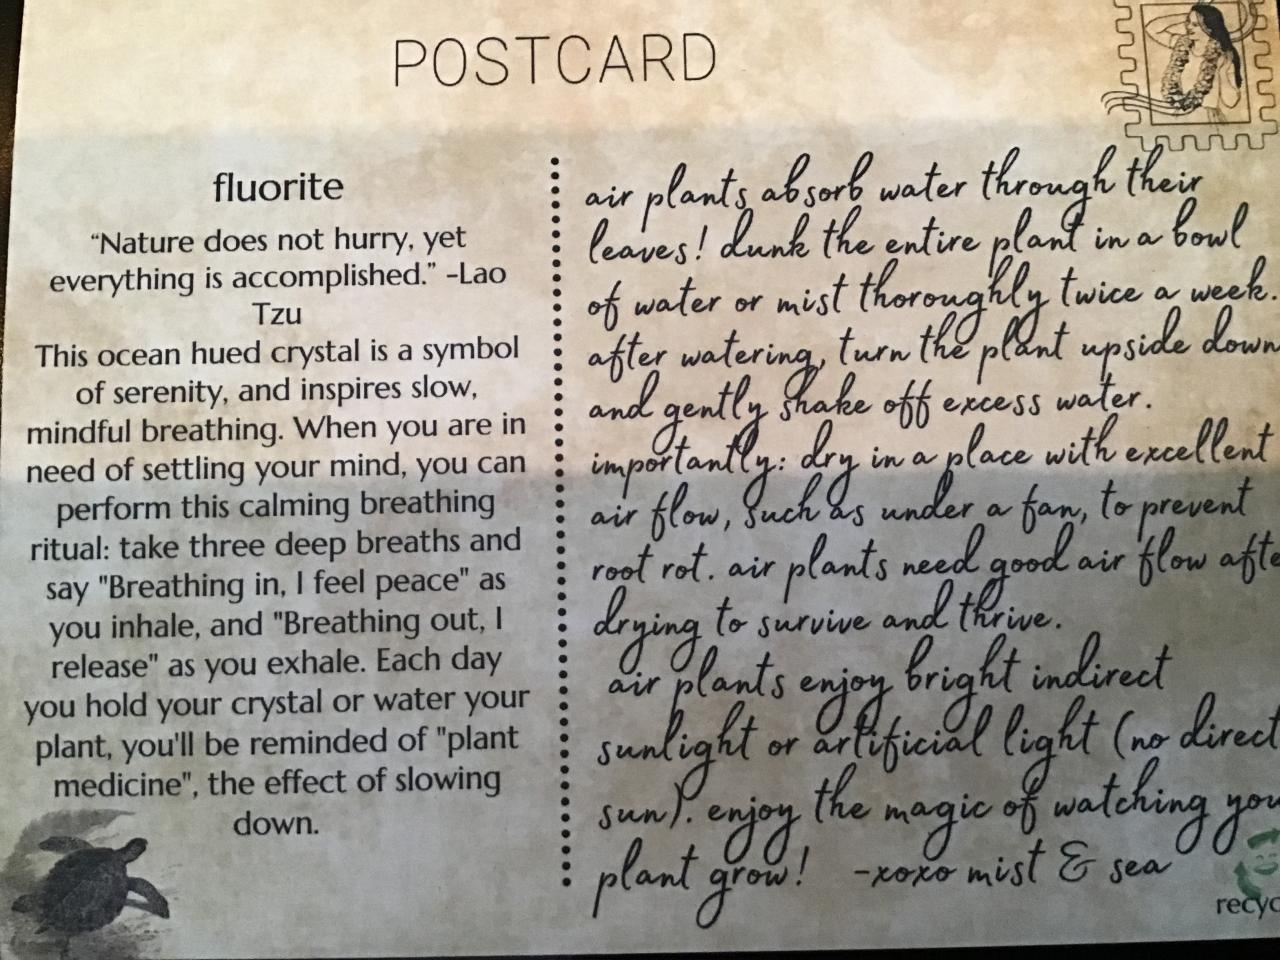 POSTCARD
fluorite
“Nature does not hurry, yet
everything is accomplished.” -Lao
Tzu
This ocean hued crystal is a symbol
of serenity, and inspires slow,
mindful breathing. When you are in
need of settling your mind, you can
perform this calming breathing
ritual: take three deep breaths and
say "Breathing in, I feel peace" as
you inhale, and "Breathing out, I
release" as you exhale. Each day
you hold your crystal or water your
plant, you'll be reminded of "plant
medicine", the effect of slowing
down.
air plants absorb water through their
leaves! dunk the entire plant in a bowl
of water or mist thoroughly twice a week.
after watering, turn the plant upside down
and gently shake off excess water.
importantly: dry in a place with excellent
air flow, such as under a fan, to prevent
root rot. air plants need good air flow afte
drying to survive and thrive.
air plants enjoy bright indirect
sunlight or artificial light (no direct
sun). enjoy the magic of watching you
plant grow! -xoxo mist & sea
recyc